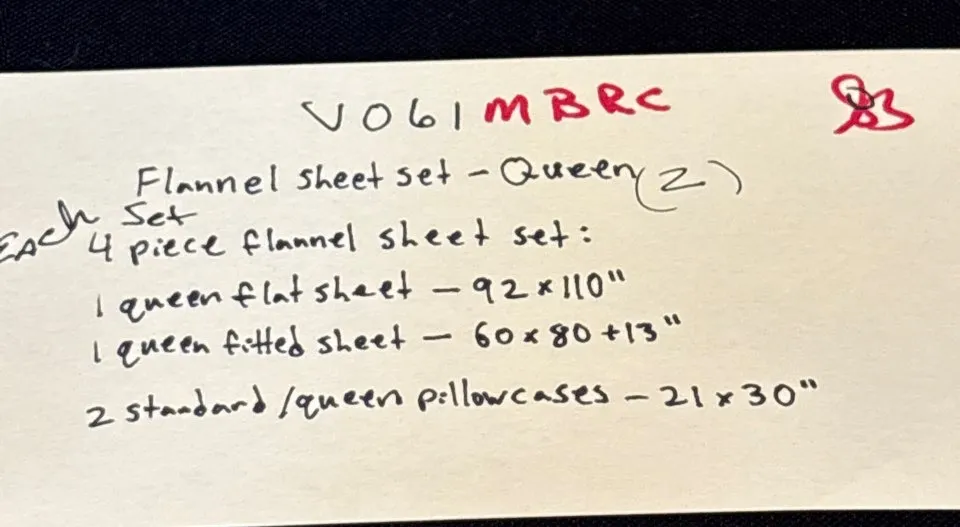 V061 MBRC
Flannel sheet set - Queen (2)
EACH Set
4 piece flannel sheet set:
1 queen flat sheet - 92 x 110"
1 queen fitted sheet - 60 x 80 + 13"
2 standard/queen pillowcases - 21 x 30"